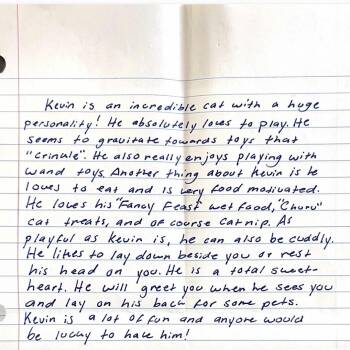 Kevin is an incredible cat with a huge
personality! He absolutely loves to play. He
seems to gravitate towards toys that
"crinkle". He also really enjoys playing with
wand toys. Another thing about Kevin is he
loves to eat and is very food motivated.
He loves his "Fancy Feast" wet food, "Churu"
cat treats, and of course catnip. As
playful as Kevin is, he can also be cuddly.
He likes to lay down beside you or rest
his head on you. He is a total sweet-
heart. He will greet you when he sees you
and lay on his back for some pets.
Kevin is a lot of fun and anyone would
be lucky to have him!